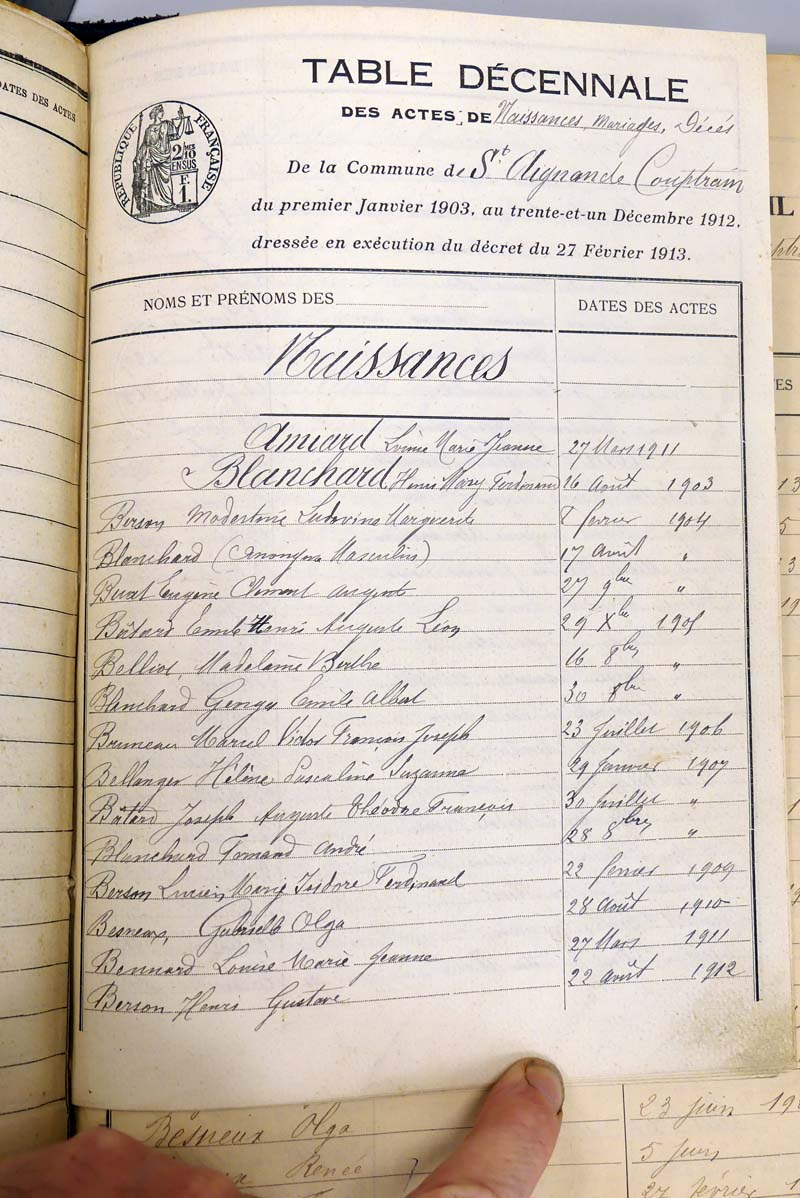 DATES DES ACTES
TABLE DÉCENNALE
DES ACTES DE Naissances, Mariages, Décés
RÉPUBLIQUE FRANÇAISE
2/10 MES
EN SUS
F.
1.
De la Commune de St Aignan de Couptrain
du premier Janvier 1903, au trente-et-un Décembre 1912.
dressée en exécution du décret du 27 Février 1913.
NOMS ET PRÉNOMS DES DATES DES ACTES
Naissances
Amiard Louise Marie Jeanne 27 Mars 1911
Blanchard Henri Ferdinand 16 Août 1903
Berson Ludovine Marguerite 8 fevrier 1904
Blanchard (Anonyme Masculin) 17 Août "
Buat Eugène Clément Auguste 27 9bre "
Bâtard Emile Henri Auguste Léon 29 Xbre 1905
Belliot, Madeleine Berthe 16 8bre "
Blanchard Georges Emile Albert 30 8bre "
Bruneau Marcel Victor François Joseph 23 Juillet 1906
Bellanger Hélène Pascaline Suzanne 29 Janvier 1907
Bâtard Joseph Auguste Théodore François 30 Juillet "
Blanchard Fernand André 28 8bre "
Berson Lucien Marie Isidore Ferdinand 22 fevrier 1909
Besneux, Gabrielle Olga 28 Août 1910
Bennard Louise Marie Jeanne 27 Mars 1911
Berson Henri Gustave 22 Août 1912
Besneux Olga 23 juin
Renée 5 Juin
27 février